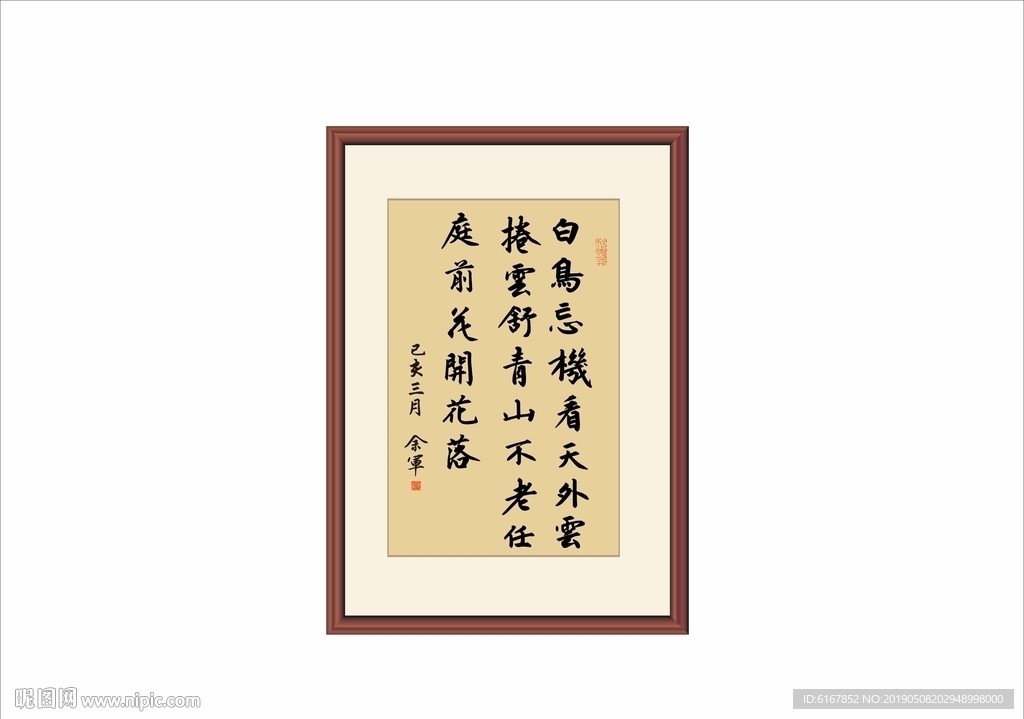 白鳥忘機看天外雲
捲雲舒青山不老任
庭前花開花落
己亥三月 余軍
昵图网 www.nipic.com
ID:6167852 NO:20190508202948998000